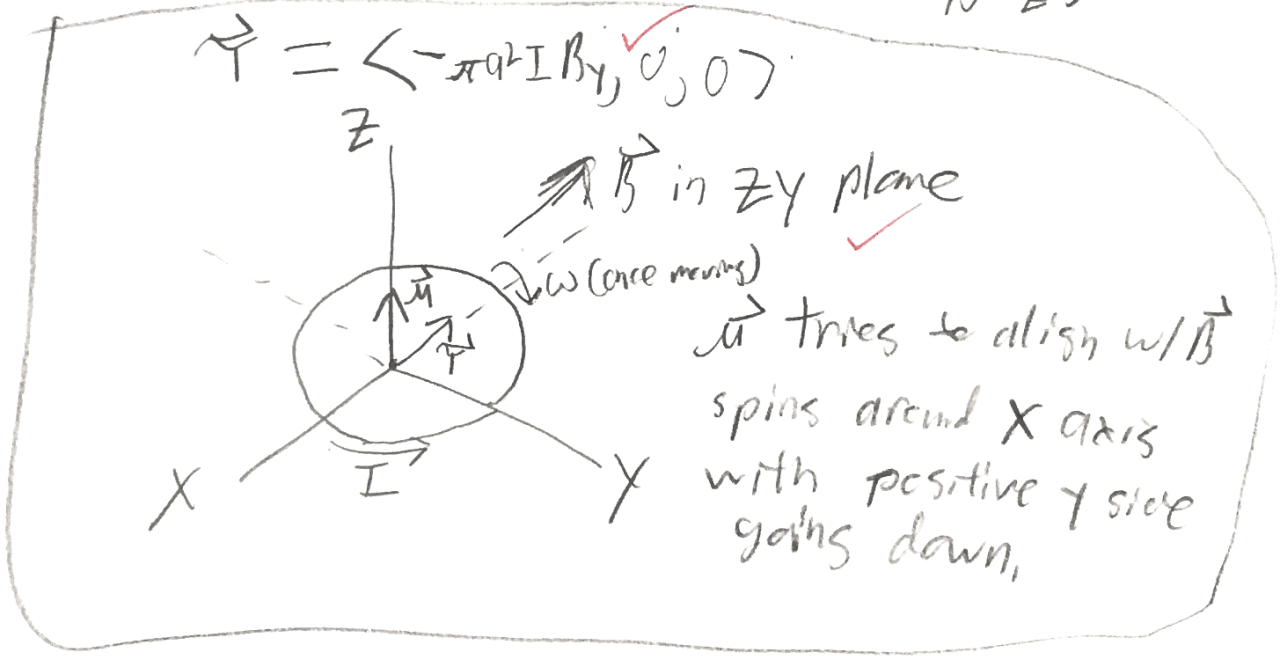 τ⃗ = <-πa²IBy, 0, 0>
Z
B⃗ in zy plane
ω (once moving)
μ⃗
τ⃗
μ⃗ tries to align w/ B⃗
spins around X axis
with positive y side
going down.
I
X
Y